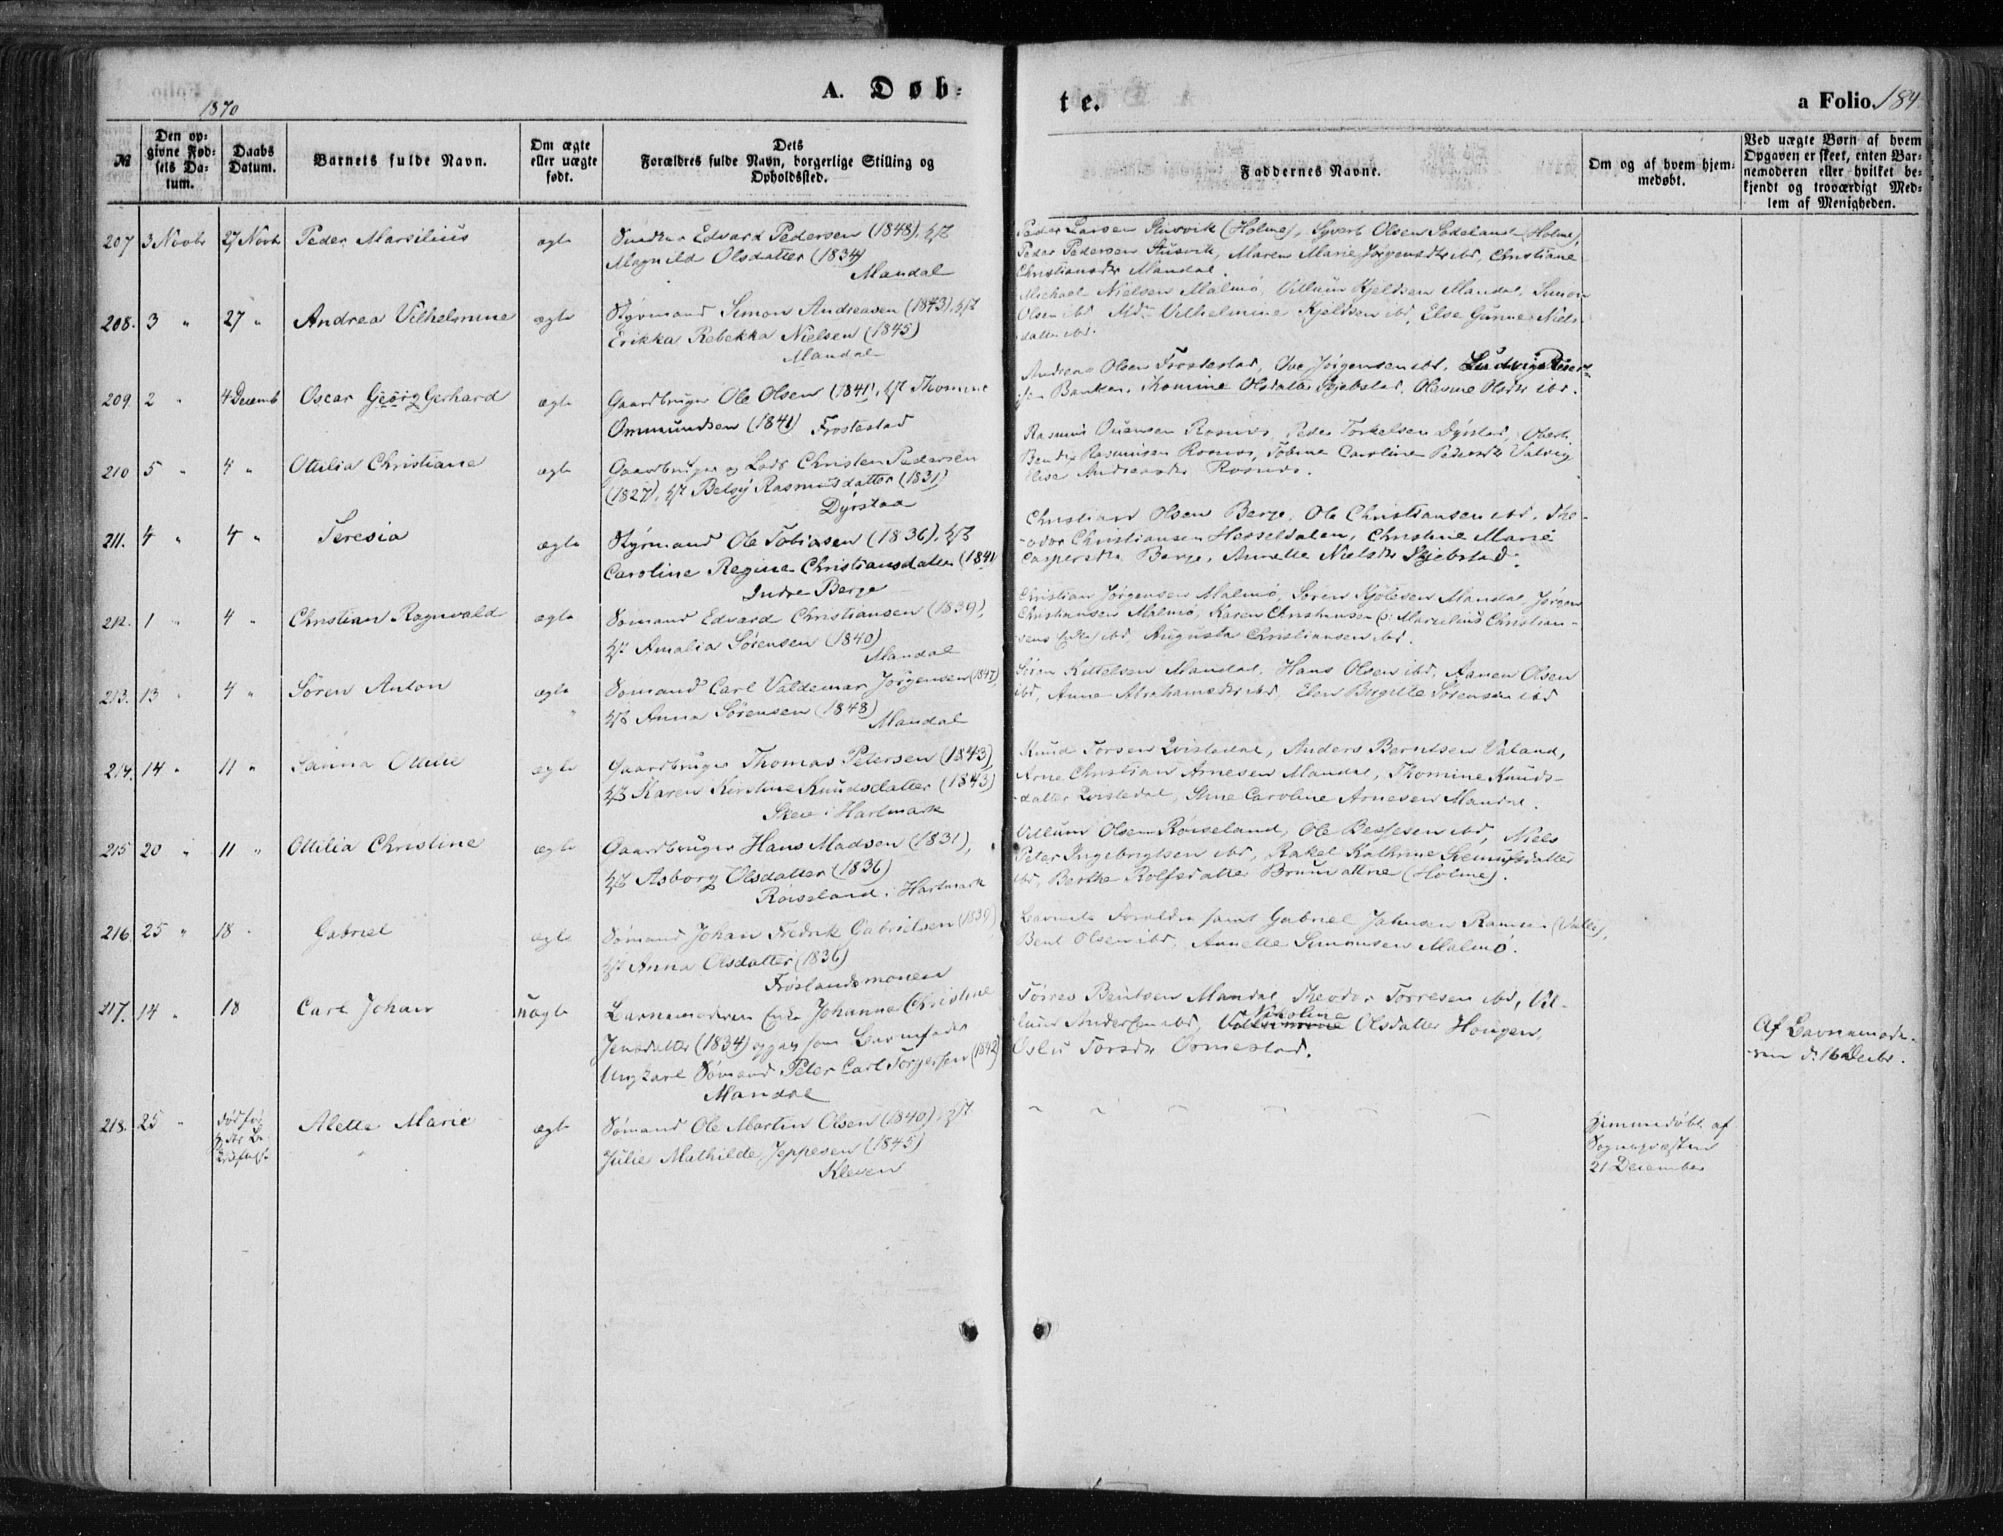 1870
A. Døb-
te.
a Folio. 184
№
Den op-
givne Fød-
sels Da-
tum.
Daabs
Datum.
Barnets fulde Navn.
Om ægte
eller uægte
født.
Dets
Forældres fulde Navn, borgerlige Stilling og
Opholdssted.
Faddernes Navne.
Om og af hvem hjem-
medøbt.
Ved uægte Børn af hvem
Opgaven er skeet, enten Bar-
nemoderen eller hvilket be-
kjendt og troværdigt Med-
lem af Menigheden.
207 3 Novbr 27 Novbr Peder Marsilius ægte Edvard Pedersen (1848),
Magnild Olsdatter (1834)
Mandal
Peder Larsen Stusvik (Holme), Syvert Olsen Sødeland (Holme),
Peder Pedersen Stusvik, Maren Marie Jørgensdtr ibd, Christiane
Christiansdtr Mandal.
208. 3 " 27 " Andrea Vilhelmine ægte Styrmand Simon Andreasen (1843),
Erikka Rebekka Nielsen (1845)
Mandal
Michael Nielsen Malmø, Villum Kjeldsen Mandal, Simon
Olsen ibd, Vilhelmine Kjeldsen ibd, Else Gunne Niels-
datter ibd.
209. 2 " 4 Decemb Oscar Georg Gerhard ægte Gaardbruger Ole Olsen (1841), Thomine
Ommundsen (1841) Frostestad
Andreas Olsen Frostestad, Ove Jørgensen ibd,
Banken, Thomine Olsdatter Skjebstad, Olevine Olsdtr ibd.
210 5 " 4 " Ottilia Christiane ægte Gaardbruger og Lods Christen Pedersen
(1827), Betsy Rasmusdatter (1831)
Dyrstad
Rasmus Rosnes, Peder Torkelsen Dyrstad,
Bendix Rasmusen Rosnes, Tobine Caroline Pedersdtr Valvig
Elise Andreasdtr Rosnes.
211. 4 " 4 " Teresia ægte Styrmand Ole Tobiasen (1836),
Caroline Regine Christiansdatter (1841
Indre Berge
Christian Olsen Berge, Ole Christiansen ibd, The-
-odor Christiansen Hesseldalen, Christine Marie
Caspersdtr Berge, Annette Nielsdtr Skjebstad.
212. 1 " 4 " Christian Ragnvald ægte Sømand Edvard Christiansen (1839),
Amalia Sørensen (1840)
Mandal
Christian Jørgensen Malmø, Søren Mandal, Jørgen
Christiansen Malmø, Karen Christiansen (: Marcelius Christian-
sens ibd, Augusta Christiansen ibd.
213. 13 " 4 " Søren Anton ægte Sømand Carl Valdemar Jørgensen (1847),
Anna Sørensen (1848)
Mandal
Søren Kittelsen Mandal, Hans Olsen ibd, Aanen Olsen
ibd, Anne Abrahamsdtr ibd, Elen Birgitte Sørensen ibd
214. 14 " 11 " Sanna Ottilie ægte Gaardbruger Thomas Petersen (1843),
Karen Kirstine Knudsdatter (1843)
Skeie i Hartmark
Knud Torsen Qvistedal, Anders Berntsen Valand,
Arne Christian Arnesen Mandal, Thomine Knuds-
-datter Qvistedal, Stine Caroline Arnesen Mandal.
215 20 " 11 " Ottilia Christine ægte Gaardbruger Hans Madsen (1831),
Asborg Olsdatter (1836)
Røiseland i Hartmark
Villum Olsen Røiseland, Ole ibd, Niels
Peter Ingebrigtsen ibd, Rakel Kathrine
ibd, Berthe Rolfsdatter (Holme).
216 25 " 18 " Gabriel ægte Sømand Johan Fredrik Gabrielsen (1839)
Anna Olsdatter (1836)
Frøslandsmonen
Barnets Forældre samt Gabriel Jahnsen
Bent Olsen ibd, Annette Simonsen Malmø.
217. 14 " 18 Carl Johan uægte Barnemoderen Enke Johanne Christine
Jensdatter (1834) opgav som Barnefader
Ungkarl Sømand Peter Carl Torgersen (1842)
Mandal
Tørres Bentsen Mandal, Theodor Torresen ibd, Vil-
lum Andersen ibd, Nikoline Olsdatter Hougen,
Torsdtr Ormestad.
Af Barnemode-
ren d. 16 Decbr.
218. 25 " Alette Marie ægte Sømand Ole Martin Olsen (1840),
Julie Mathilde Jeppesen (1845)
Kleven
Hjemmedøbt af
Sognepræsten
21 December